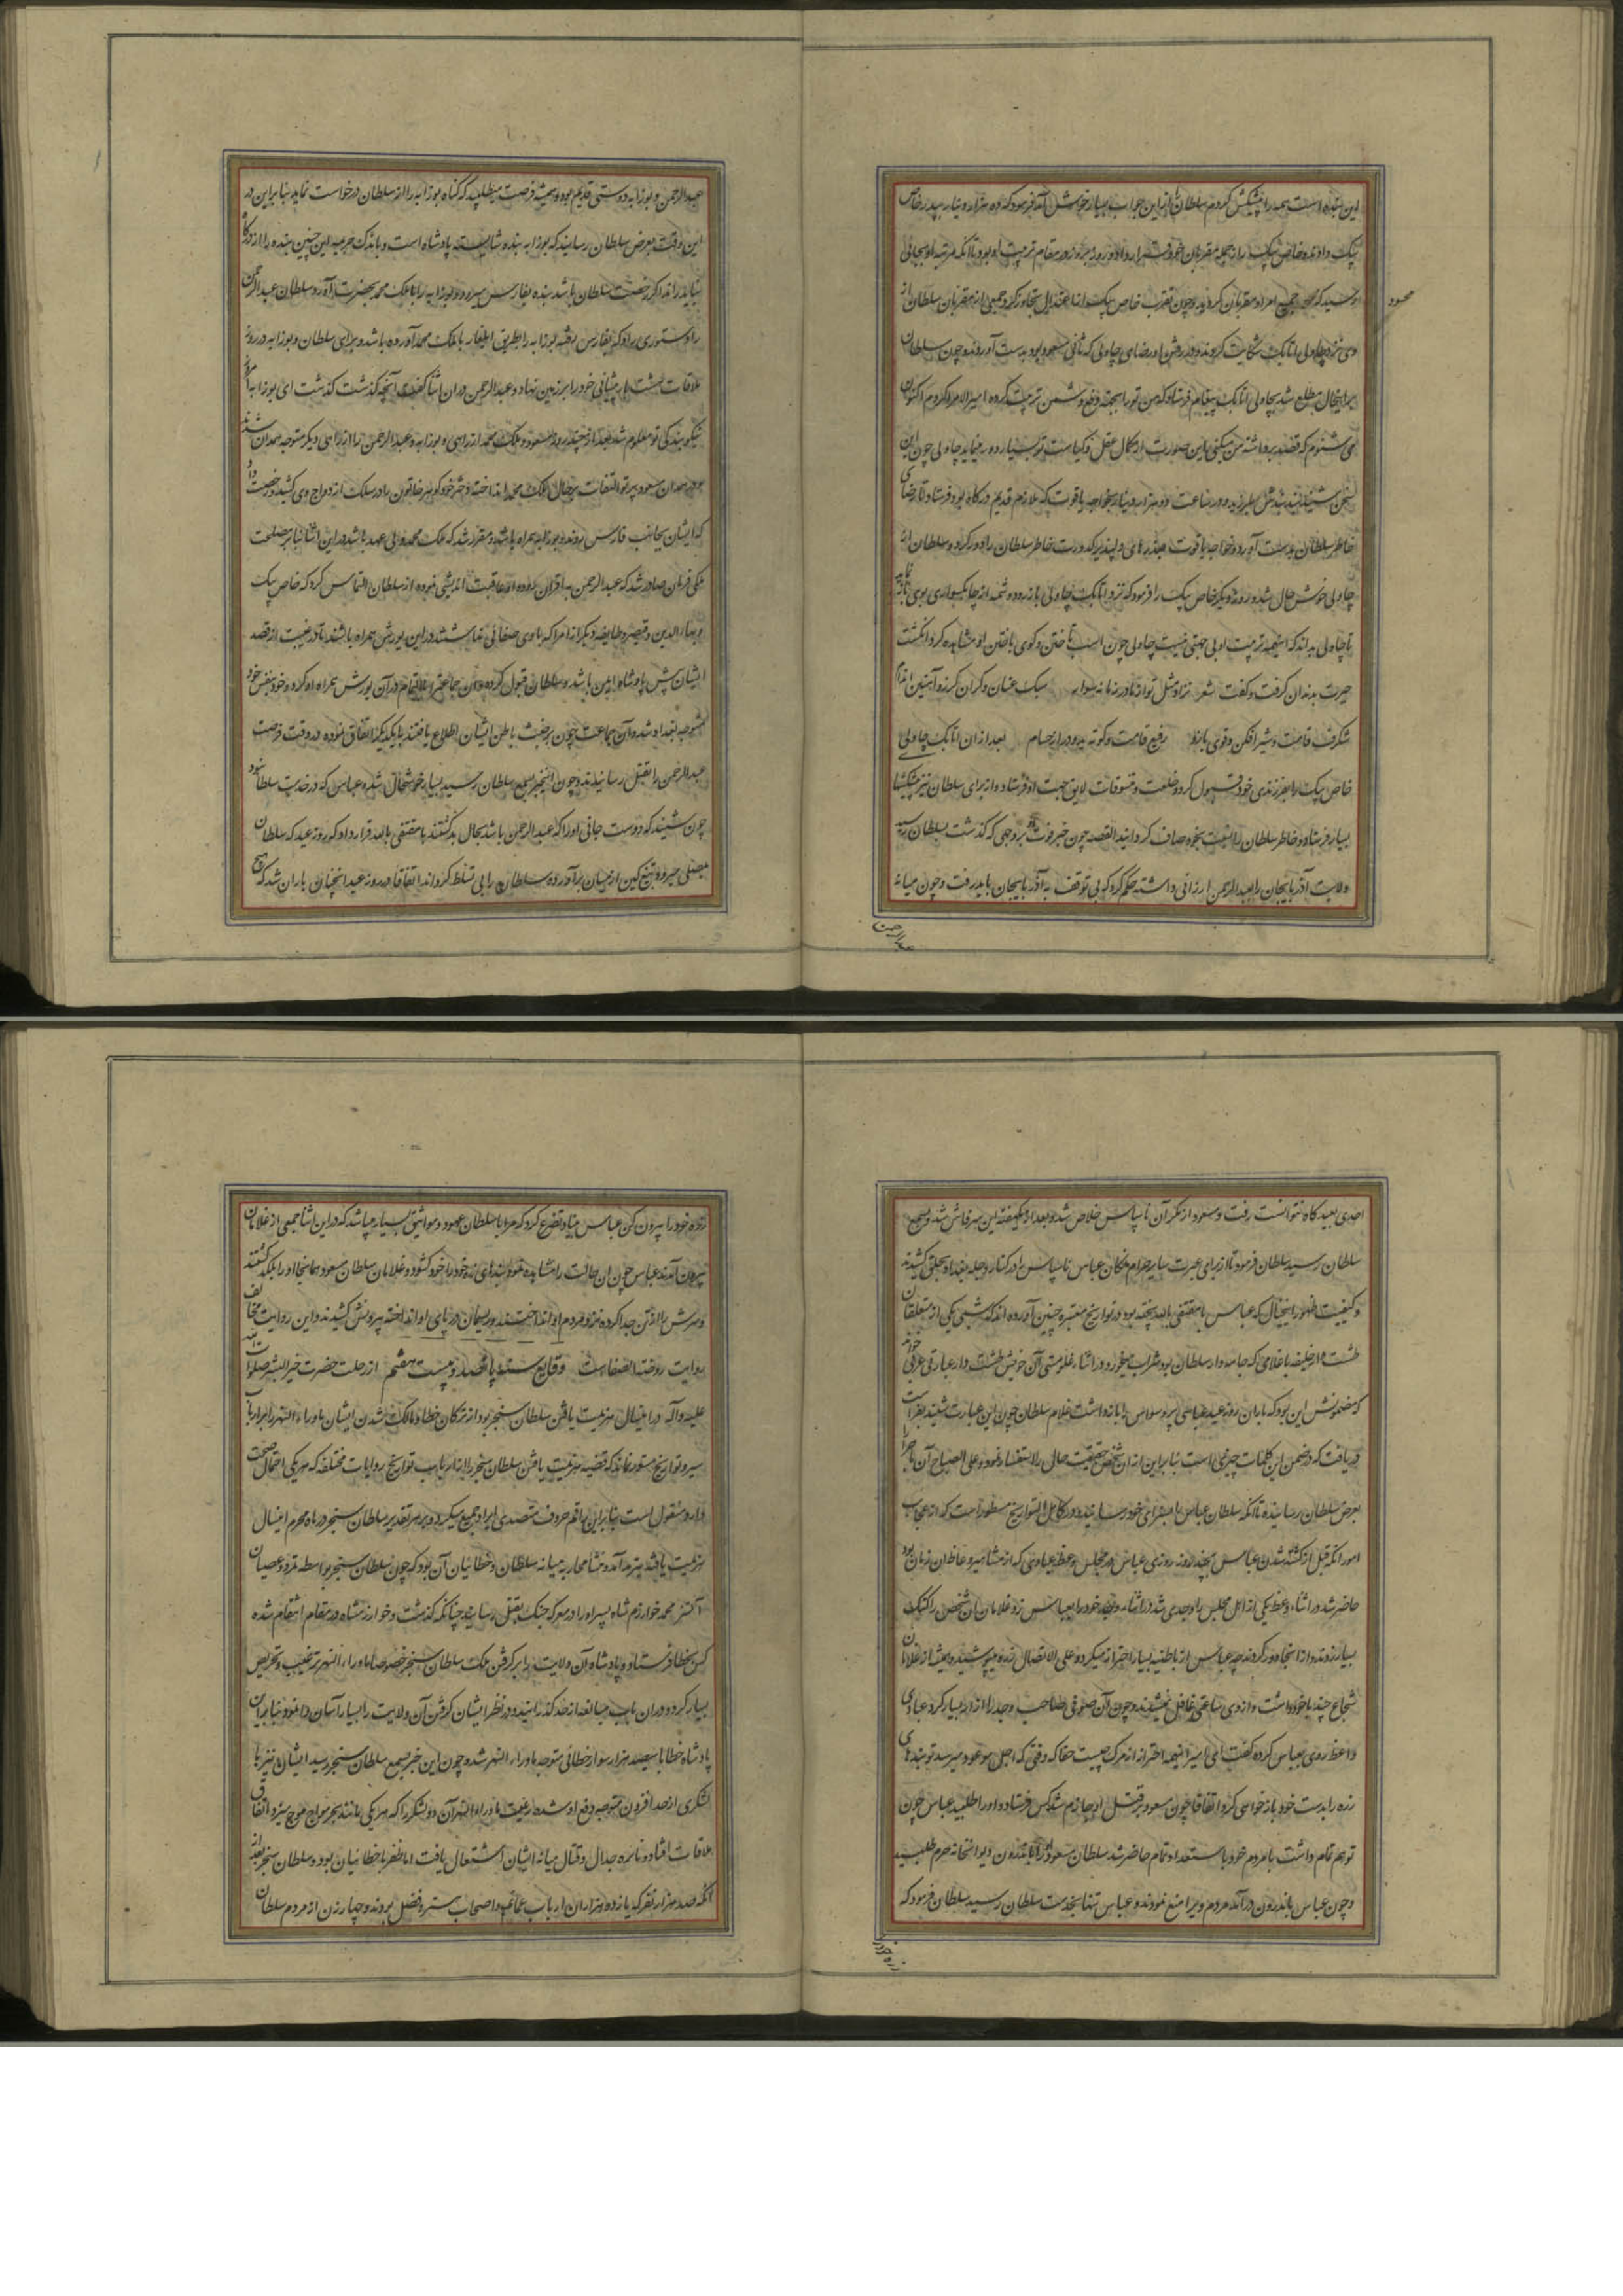 این بنده است همه را پیشکش کردم سلطان را از این جواب بسیار خوش آمد فرمود که ده هزار دینار بپدر خاص
بیک دادند و خاص بیک را از جمله مقربان خود قرار داد و روز بروز در مقام تربیت او بود تا آنکه مرتبه او بجائی
رسید که محسود جمیع امراء و مقربان گردید و چون تقرب خاص بیک از حد اعتدال تجاوز کرد جمعی از مقربان سلطان از
محسود
وی نزد چاولی اتابک شکایت کردند و در رفتن او رضای چاولی که ثانی مسعود بود بدست آوردند و چون سلطان
براینحال مطلع شد بچاولی اتابک پیغام فرستاد که من تو را بجهة دفع دشمن تربیت کرده امیر الامرا کردم اکنون
می شنوم که قصد برداشته من میکنی این صورت از کمال عقل و کیاست تو بسیار دور مینماید چاولی چون این
سخن شنید بر خود بلرزید و در ساعت ده هزار دینار بخواجه یاقوت که ملازم قدیم درگاه بود فرستاد تا رضای
خاطر سلطان بدست آورد و خواجه یاقوت بعذرهای دلپذیر کدورت خاطر سلطان را دور کرد و سلطان از
چاولی خوش حال شد و روز دیگر خاص بیک را فرمود که نزد اتابک چاولی بازرود و شمه از چابکسواری بوی نماید
تا چاولی بداند که اینهمه تربیت او بی جهتی نیست چاولی چون اسب تاختن و گوی باختن او مشاهده کرد انگشت
حیرت بدندان گرفت و گفت شعر نزاد مثل تو از مادر زمانه سوار سبک عنان و گران گرز و آهنین اندام
شگرف قامت و شیر افکن و قوی بازو رفیع قامت و کوته و دراز حسام بعد از آن اتابک چاولی
خاص بیک را بفرزندی خود قبول کرد و خلعت و تنسوقات لایق جهت او فرستاد و از برای سلطان نیز پیشکشها
بسیار فرستاد و خاطر سلطان را نسبت بخود صاف گردانید القصه چون خبر فوت او بر وجهی که گذشت بسلطان رسید
ولایت آذربایجان را بعبدالرحمن ارزانی داشته حکم کرد که بی توقف به آذربایجان باید رفت و چون میانه
عبدالرحمن
عبدالرحمن و بوزابه دوستی قدیم بود و همیشه فرصت میطلبید که گناه بوزابه را از سلطان درخواست نماید بنابراین در
این وقت بعرض سلطان رسانید که بوزابه بنده شایسته پادشاه است و باندک جریمه این چنین بنده را از درگاه
نباید راند اگر رخصت سلطان باشد بنده بفارس میرود و بوزابه را با ملک محمد بحضرت آورد سلطان عبدالرحمن
را دستوری داد که بفارس رفته بوزابه را بطریق ایلغار با ملک محمد آورده باشد و برای سلطان و بوزابه در روز
ملاقات هشت بار پیشانی خود را بر زمین نهاد و عبدالرحمن در آن اثنا گفت آنچه گذشت گذشت ای بوزابه
نیکو بندگی تو معلوم شد بعد از چند روز مسعود و ملک محمد از راهی و بوزابه و عبدالرحمن از راهی دیگر متوجه همدان شدند
و در همدان مسعود پرتو التفات بر حال ملک محمد انداخت و دختر خود گوهر خاتون را در سلک ازدواج وی کشید و رخصت داد
که ایشان بجانب فارس روند و بوزابه همراه باشد و مقرر شد که ملک محمد ولی عهد باشد در این اثنا بنابر مصلحت
ملکی فرمان صادر شد که عبدالرحمن به اران رود و او عاقبت اندیشی نموده از سلطان التماس کرد که خاص بیک
و بهاءالدین و قیصر و طایفه دیگر از امرا که با وی صفائی نداشتند در این یورش همراه باشند تا در غیبت از قصد
ایشان پس پادشاه ایمن باشد و سلطان قبول کرده و آن جماعت را بالتمام در آن یورش همراه او کرد و خود بنفس خود
متوجه بغداد شد و آن جماعت چون بر خبث باطن ایشان اطلاع یافتند با یکدیگر اتفاق نموده در وقت فرصت
عبدالرحمن را بقتل رسانیدند و چون اینخبر بسمع سلطان رسید بسیار خوشحال شد و عباس که در خدمت سلطان بود
چون شنید که دوست جانی او را که عبدالرحمن باشد بحال بد کشتند با مقتفی بالله قرار داد که روز عید که سلطان
بمصلی میرود تیغ کین از میان برآورده سلطان را بی تسلط گرداند اتفاقا در روز عید آنچنان باران شد که هیچ
احدی بعیدگاه نتوانست رفت و مسعود از مکر آن ناسپاس خلاص شد و بعد از دو هفته این سر فاش شد و بسمع
سلطان رسید سلطان فرمود تا از برای عبرت سایر حرام نمکان عباس ناسپاس را در کنار دجله بغداد بحلق کشیدند
و کیفیت ظهور اینحال که عباس با مقتفی بالله پخته بود در تواریخ معتبره چنین آورده اند که شبی یکی از متعلقان
طشت دار خلیفه با غلامی که جامه دار سلطان بود شراب میخورد در اثناء غلومستی آن خویش طشت دار عبارتی عربی خواند
که مضمونش این بود که باران روز عید عباسی پر وسواس را باز داشت غلام سلطان چون این عبارت شنید بفراست
دریافت که در ضمن این کلمات چیزی است بنابراین از آن شخص حقیقت حال را استفسار نمود و علی الصباح آن ماجرا
بعرض سلطان رسانیده تا آنکه سلطان عباس را بسزای خود رسانید و در کامل التواریخ مسطور است که از عجایب
امور آنکه قبل از کشته شدن عباس بچند روز روزی عباس در مجلس وعظ عبادی که از مشاهیر وعاظ آن زمان بود
حاضر شد در اثناء وعظ یکی از اهل مجلس را وجدی شد در اثناء وجد خود را بعباس زد غلامان آن شخص را کتک
بسیار زدند و از آنجا دور کردند چه عباس از باطنیه بسیار احتراز میکرد و علی الاتصال زره میپوشید و همیشه از غلامان
شجاع چند با خود داشت و از وی ساعتی غافل نمیشدند و چون آن صوفی صاحب وجد را آزار بسیار کرد عبادی
واعظ روی بعباس کرده گفت ای امیر اینهمه احتراز از مرگ چیست حقا که وقتی که اجل موعود میرسد تو بندهای
زره را بدست خود باز خواهی کرد اتفاقا چون مسعود بر قتل او جازم شد کس فرستاده او را طلبید عباس چون
توهم تمام داشت با مردم خود با استعداد تمام حاضر شد سلطان مسعود او را باندرون دیوانخانه حرم طلبید
و چون عباس باندرون درآمد مردم ویرا منع نمودند و عباس تنها بخدمت سلطان رسید سلطان فرمود که
زره خود را
زره خود را بیرون کن عباس بنیاد تضرع کرد که مرا با سلطان عهود و مواثیق بسیار میباشد که در این اثنا جمعی از غلامان
بیرون آمدند عباس چون آن حالت را مشاهده نمود بندهای زره خود را خود گشود و غلامان سلطان مسعود همانجا او را بکشتند
و سرش را از تن جدا کرده نزد مردم او انداختند و ریسمان در پای او انداخته بیرونش کشیدند و این روایت مخالف
روایت روضة الصفا است وقایع سنه پانصد و بیست هفتم از رحلت حضرت خیر البشر صلوات الله
علیه و آله در اینسال هزیمت یافتن سلطان سنجر بود از ترکان خطا و مالک شدن ایشان ماوراء النهر را بر ارباب
سیر و تواریخ مستور نماند که قضیه هزیمت یافتن سلطان سنجر را ارباب تواریخ روایات مختلفه که هر یکی احتمال صحت
دارد منقول است بنابراین راقم حروف متصدی ایراد جمیع میگردد و بر هر تقدیر سلطان سنجر در ماه محرم اینسال
هزیمت یافته بترمد آمد و منشأ محاربه میانه سلطان و خطائیان آن بود که چون سلطان سنجر بواسطه تمرد و عصیان
اتسز محمد خوارزم شاه پسر او را در معرکه جنگ بقتل رسانید چنانکه گذشت و خوارزمشاه در مقام انتقام شده
کس بخطا فرستاد و پادشاه آن ولایت را بر گرفتن ملک سلطان سنجر خصوصا ماوراء النهر ترغیب و تحریص
بسیار کرد و در آن باب مبالغه از حد گذرانید و در نظر ایشان گرفتن آن ولایت را بسیار آسان وانمود بنابراین
پادشاه خطا با سیصد هزار سوار خطائی متوجه ماوراء النهر شد و چون این خبر بسمع سلطان سنجر رسید ایشان نیز با
لشکری از حد افزون متوجه دفع او شده در ماوراء النهر آن دو لشکر را که هر یکی مانند بحر مواج موج میزد اتفاق
ملاقات افتاد و نایره جدال و قتال میانه ایشان اشتعال یافت اما ظفر با خطائیان بود و سلطان سنجر بعد از
آنکه صد هزار نفر که یازده هزار از آن ارباب عمائم و اصحاب ستر و فضل بودند و چهار زن از مردم سلطان